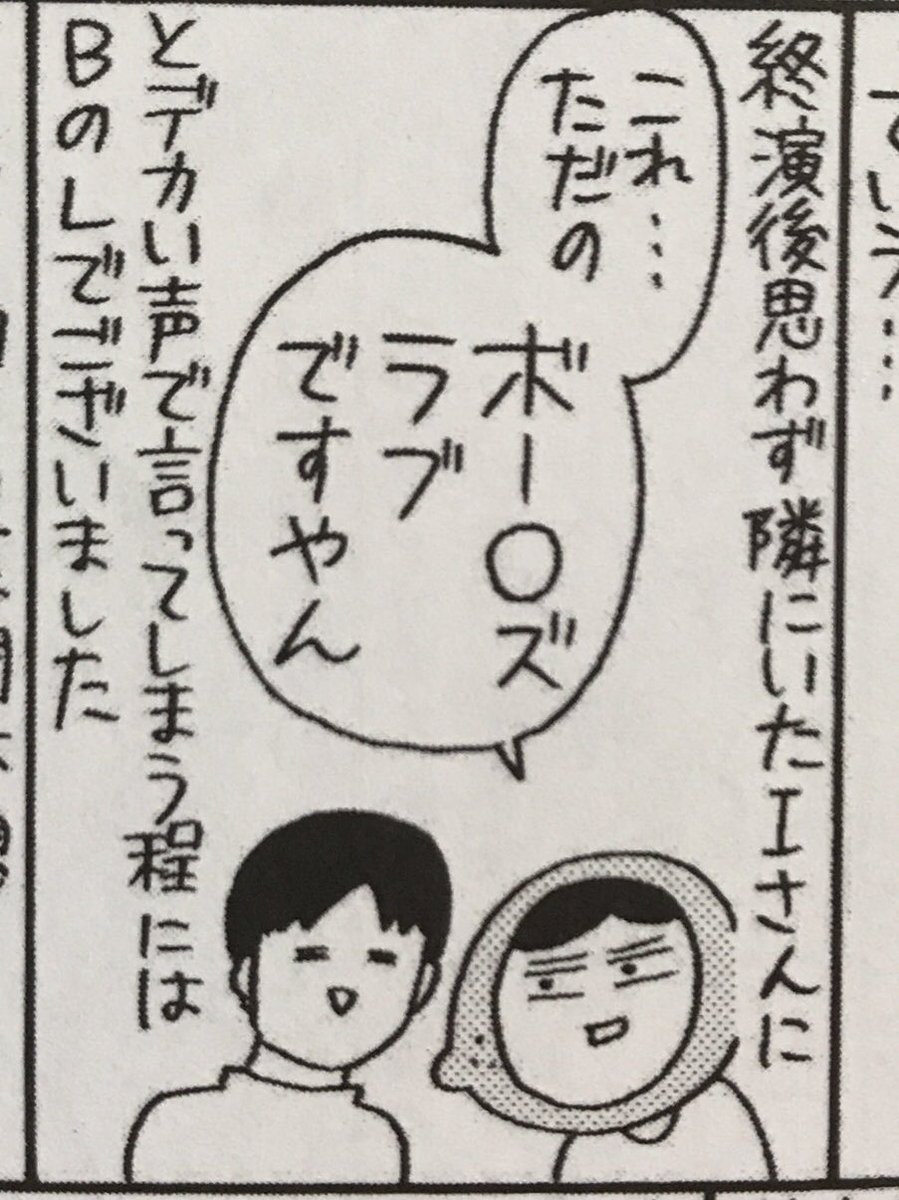 終演後思わず隣にいたIさんに
これ…
ただの
ボー〇ズ
ラブ
ですやん
とデカい声で言ってしまう程には
BのLでございました